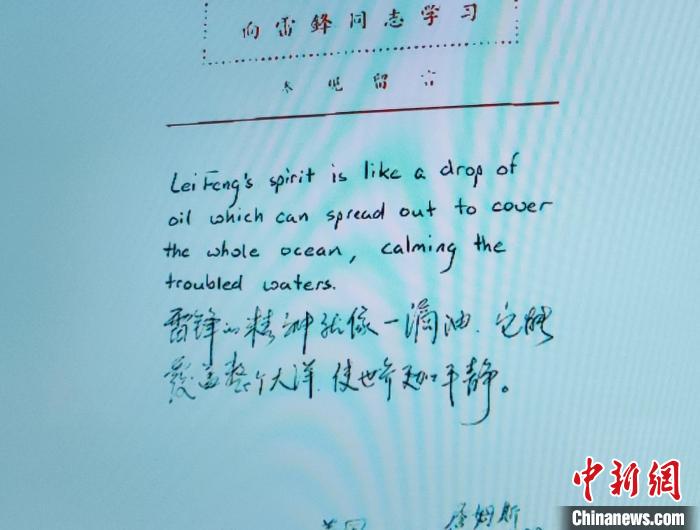 向雷鋒同志学习
参观留言
Lei Feng's spirit is like a drop of
oil which can spread out to cover
the whole ocean, calming the
troubled waters.
雷锋的精神就像一滴油、它能
覆盖整个大洋、使世界更加平静。
美国
詹姆斯
中新网
Chinanews.com